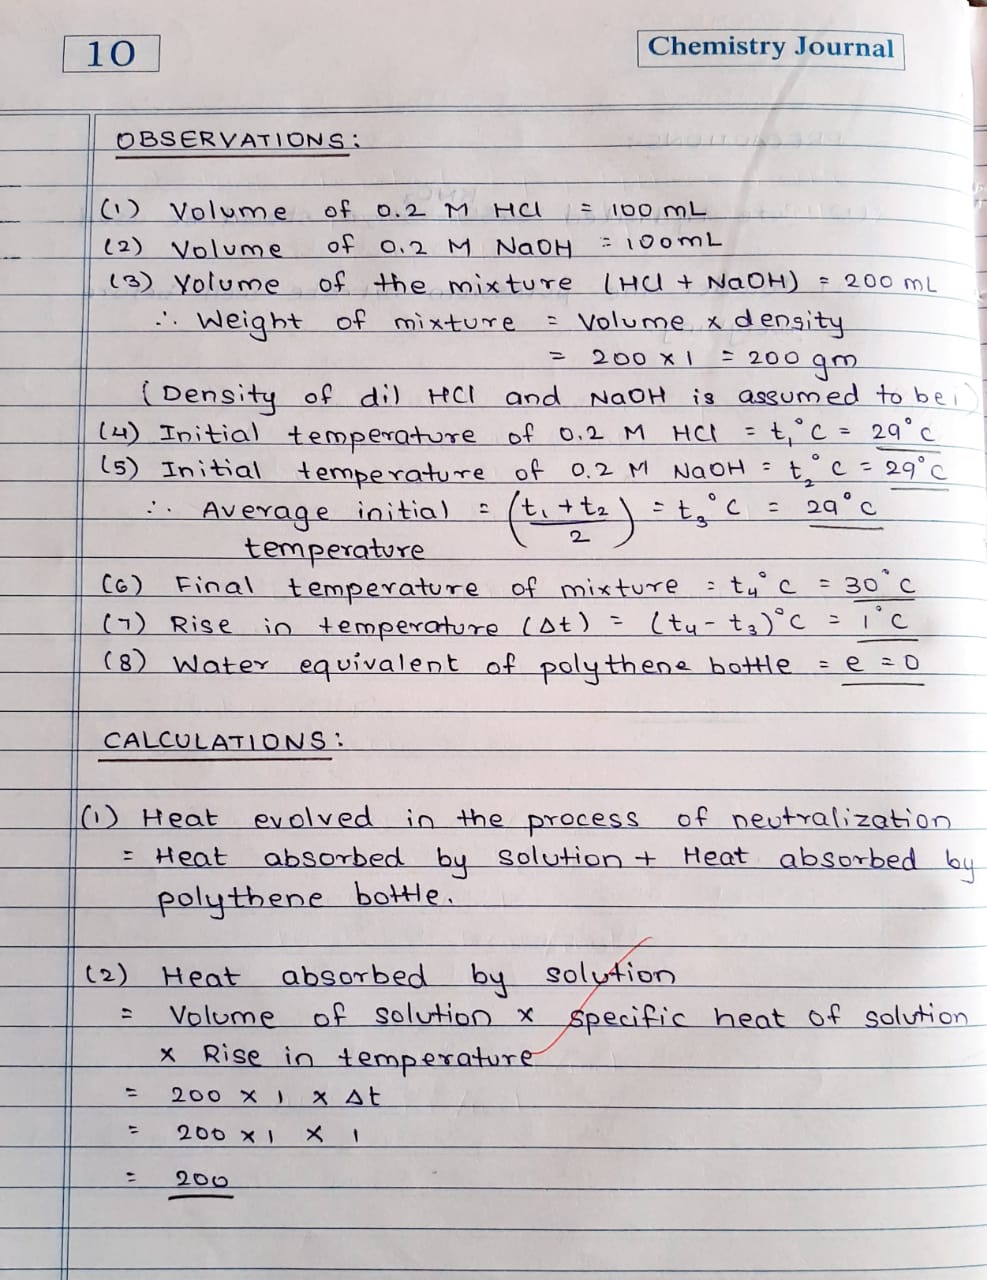 10
Chemistry Journal
OBSERVATIONS:
(1) Volume of 0.2 M HCl = 100 mL
(2) Volume of 0.2 M NaOH = 100mL
(3) Volume of the mixture (HCl + NaOH) = 200 mL
∴ Weight of mixture = Volume x density
= 200 x 1 = 200 gm
(Density of dil HCl and NaOH is assumed to be 1)
(4) Initial temperature of 0.2 M HCl = t₁°C = 29°C
(5) Initial temperature of 0.2 M NaOH = t₂°C = 29°C
∴ Average initial = (t₁ + t₂ / 2) = t₃°C = 29°C
temperature
(6) Final temperature of mixture = t₄°C = 30°C
(7) Rise in temperature (Δt) = (t₄ - t₃)°C = 1°C
(8) Water equivalent of polythene bottle = e = 0
CALCULATIONS:
(1) Heat evolved in the process of neutralization
= Heat absorbed by solution + Heat absorbed by
polythene bottle.
(2) Heat absorbed by solution
= Volume of solution x specific heat of solution
x Rise in temperature
= 200 x 1 x Δt
= 200 x 1 x 1
= 200